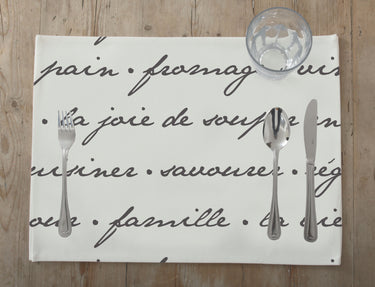 pain • fromage vin
• la joie de souper en
cuisiner • savourer • rég
our • famille • la vie